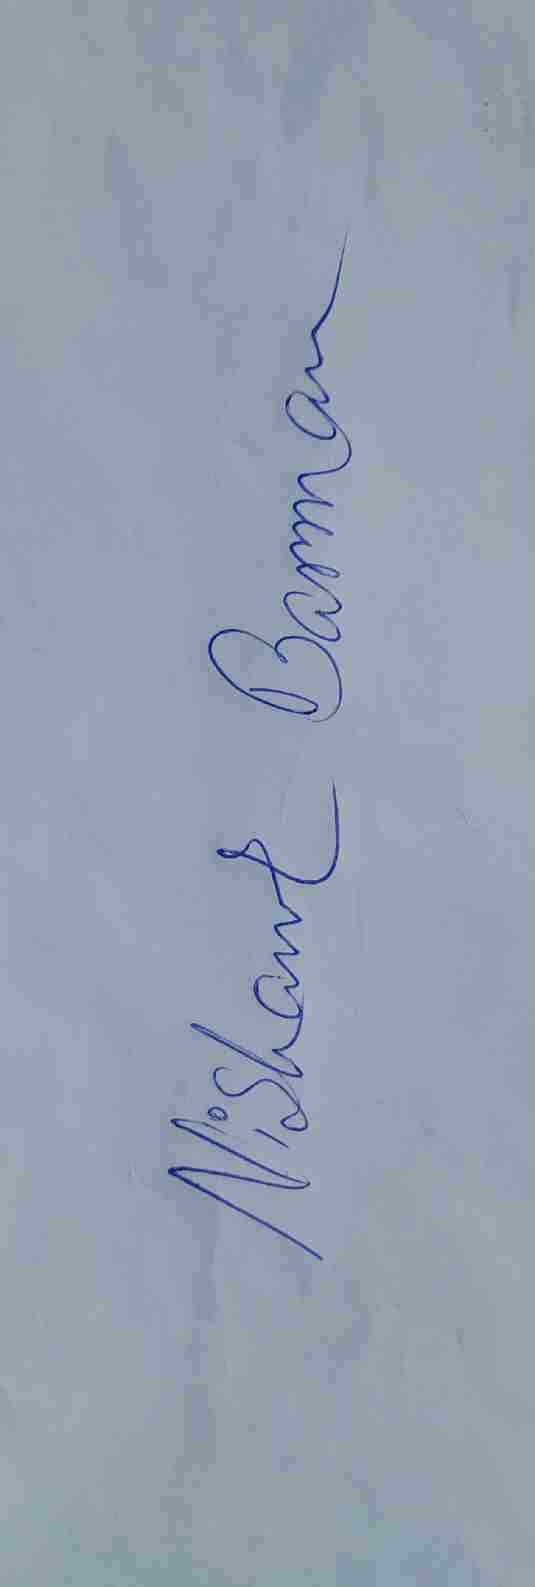 Nishant Barman